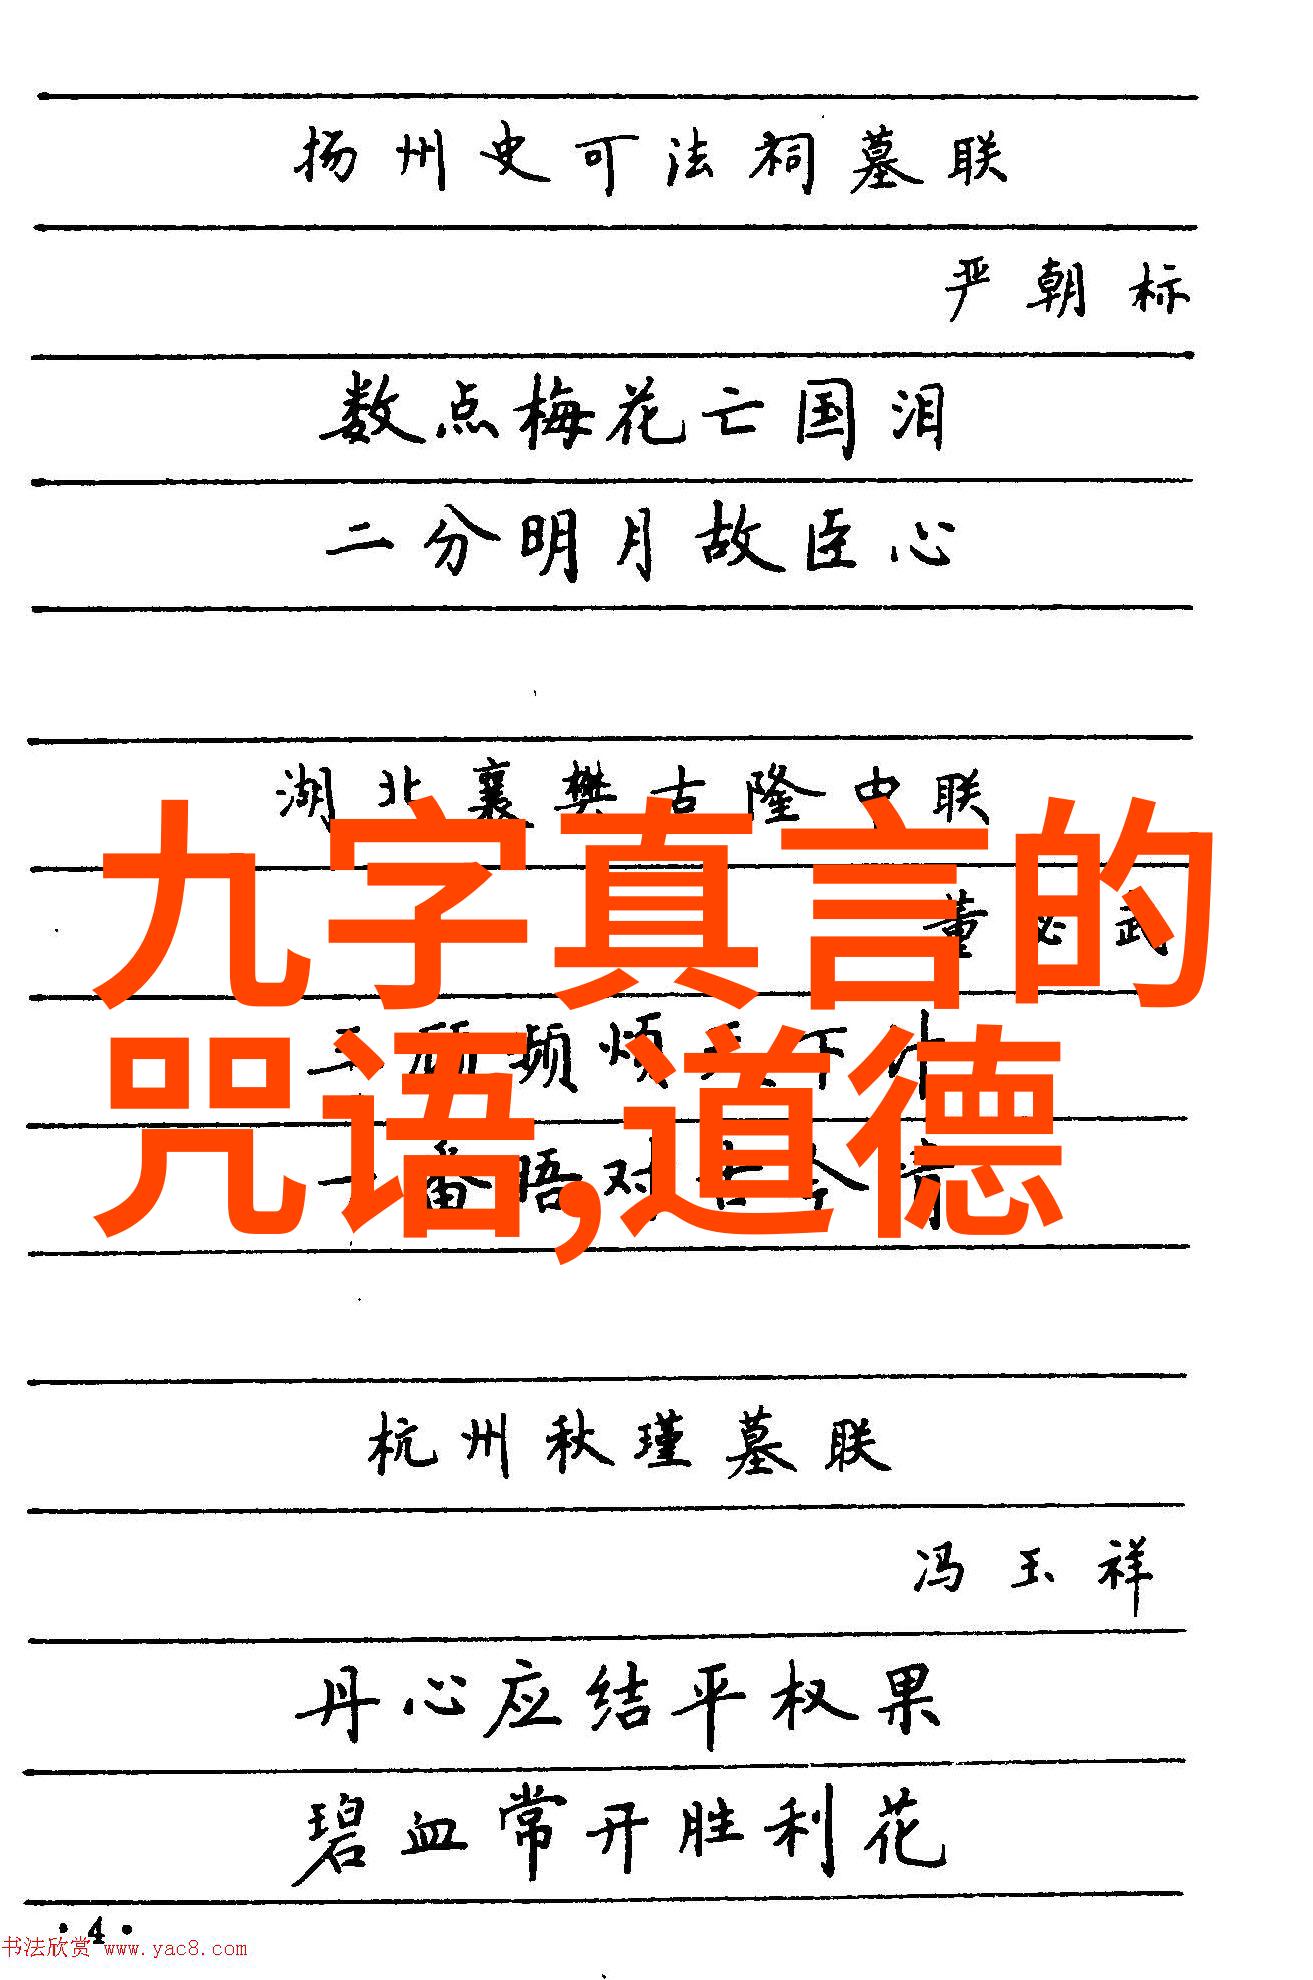 扬州史可法祠墓联
严朝标
数点梅花亡国泪
二分明月故臣心
湖北襄樊古隆中联
董必武
三顾频烦天下计
一番晤对古今情
九字真言的
咒语,道德
杭州秋瑾墓联
冯玉祥
丹心应结平权果
碧血常开胜利花
·4·
书法欣赏 www.yac8.com